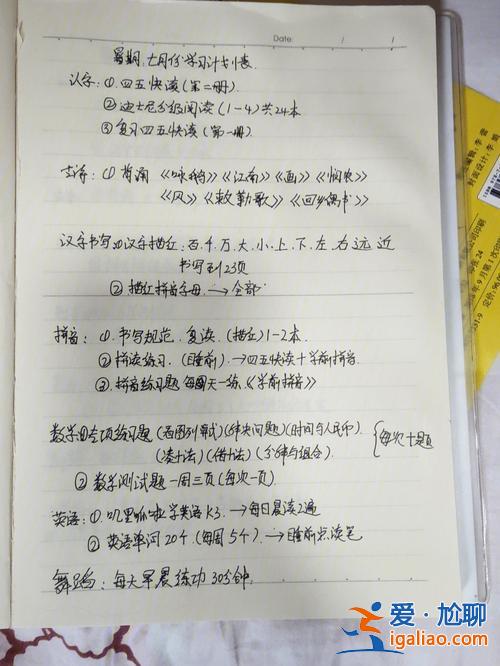 Date: / /
暑期:七月份学习计划表
认字:①四五快读(第二册)
②迪士尼分级阅读(1-4)共24本
③复习四五快读(第一册)
古诗:①背诵《咏鹅》《江南》《画》《悯农》
《风》《敕勒歌》《回乡偶书》
汉字书写①汉字描红:百.千.万.大.小.上.下.左.右.远.近
书写到23页
②描红拼音字母.→全部
拼音:①.书写规范.复读.(描红)1-2本.
②拼读练习.(睡前).→四五快读+学前拼音.
③.拼音练习题 每周天一练《学前拼音》
数学①专项练习题(看图列算式)(解决问题)(时间与人民币).
(凑十法)(借十法)(分解与组合).
{每次十题
②数学测试题一周三页(每次一页)
英语:①.叽里呱啦学英语K3.→每日晨读2遍
②英语单词20个(每周5个).→睡前点读笔
舞蹈:每天早晨练功30分钟.
封面设计:李
9月第1次印刷
定价:
爱·尬聊
igaliao.com